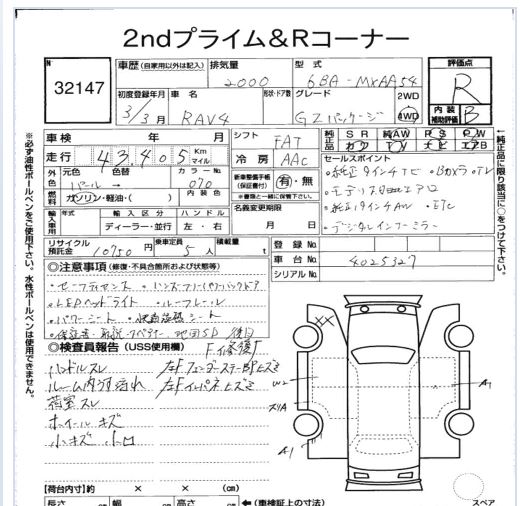 2ndプライム&Rコーナー
No 32147
車歴 (自家用以外は記入)
排気量 2000
型式 6BA-MXAA54
評価点 R
初度登録年月 3/3月
車名 RAV4
形状・ドア数
グレード GZパッケージ
2WD
4WD
内装補助評価 B
車検 年 月
シフト FAT
純正品 SR 純AW PS PW
カワ TV ナビ エアB
走行 43,405 Km マイル
冷房 AAC
セールスポイント
外色 元色 パール→ 色替
カラーNo. 070
内装色
新車整備手帳(保証書付) 有・無
※書類と一緒に保管下さい
・純正9インチナビ ・Bカメラ ・TV
・モデリスタエアロ
燃料 ガソリン・軽油・( )
名義変更期限 月 日
・純正19インチAW ・ETC
・デジタルインナーミラー
輸入車用 年式 輸入区分 ディーラー・並行 ハンドル 左・右
リサイクル預託金 10750円
乗車定員 5人
積載量 t
登録No.
車台No. 4025327
シリアルNo.
◎注意事項 (修復・不具合箇所および状態等)
・セーフティセンス ・ハンズフリーパワーバックドア
・LEDヘッドライト ・ルーフレール
・パワーシート
・保証書・取説・スペアキー
◎検査員報告 (USS使用欄) F修復
ハンドルスレ
ルーム内汚れ
荷室スレ
ホイールキズ
小キズ
左Fインパネヒズミ
XX
W2
A1
A1
【荷台内寸】約 × × (cm)
長さ cm 幅 cm 高さ cm ←(車検証上の寸法)
スペア
※必ず油性ボールペンをご使用下さい。水性ボールペンは使用できません。
↑純正品に限り該当に○をつけて下さい。